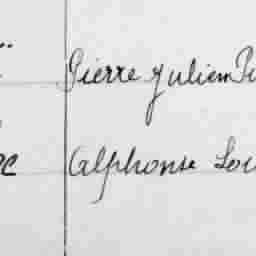 Pierre Julien
Alphonse Lou